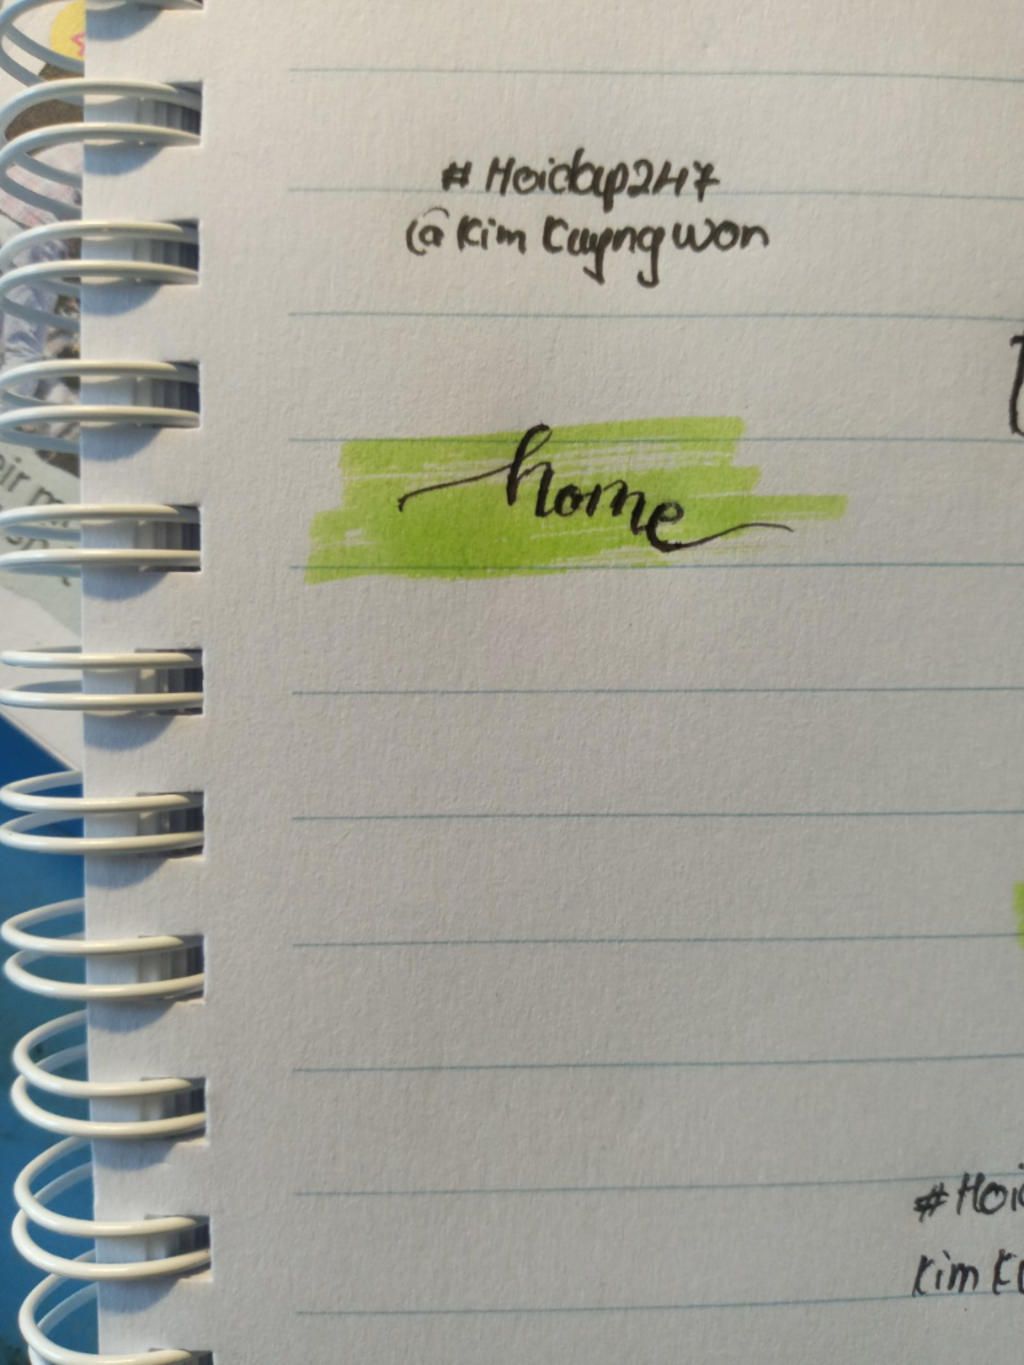 # Hoidap247
@Kim Kuyngwon
home
#Hoi
Kim K